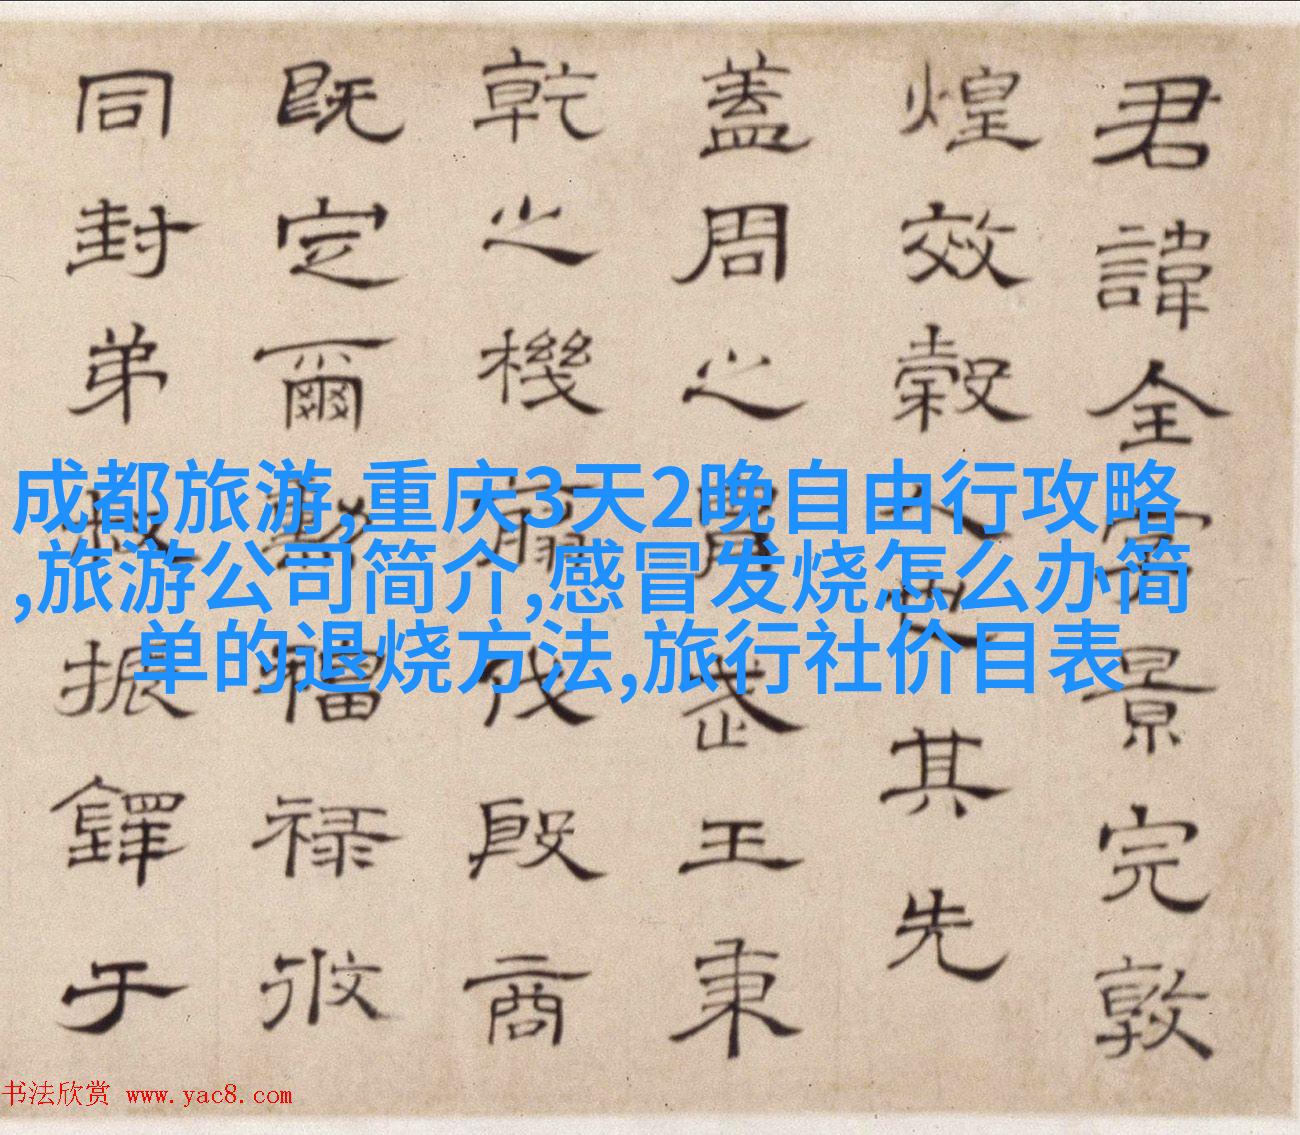 君諱全字景完敦
煌效穀人也其先
蓋周之胄武王秉
乾之機翦伐殷商
既定爾勳福祿攸
同封弟叔振鐸于
成都旅游,重庆3天2晚自由行攻略
,旅游公司简介,感冒发烧怎么办简
单的退烧方法,旅行社价目表
书法欣赏 www.yac8.com